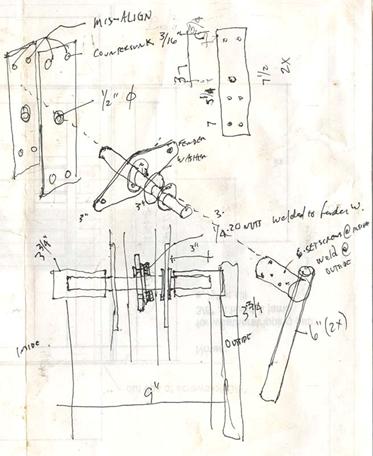 MIS-ALIGN
COUNTERSUNK 3/16"
1/2" Ø
3/4
3
7 1/2
2X
7 5 1/4
FENDER
WASHER
3"
3"
3.
1/4.20 NUTT welded to fender w.
6. SETSCREWS @ INSIDE
weld @
OUTSIDE
3 3/4"
3"
3 3/4
6" (2X)
INSIDE
OUTSIDE
9"